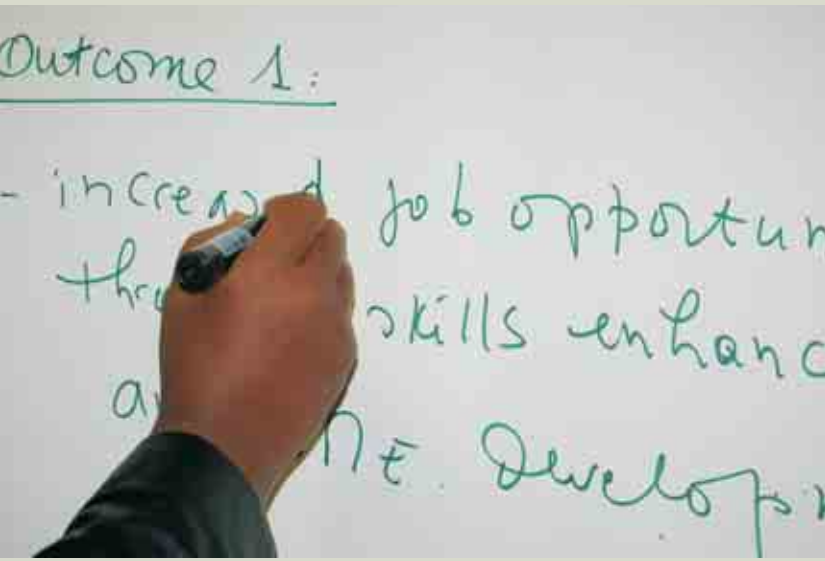 Outcome 1:
- increased job opportun
thro skills enhanc
a ME. Develop